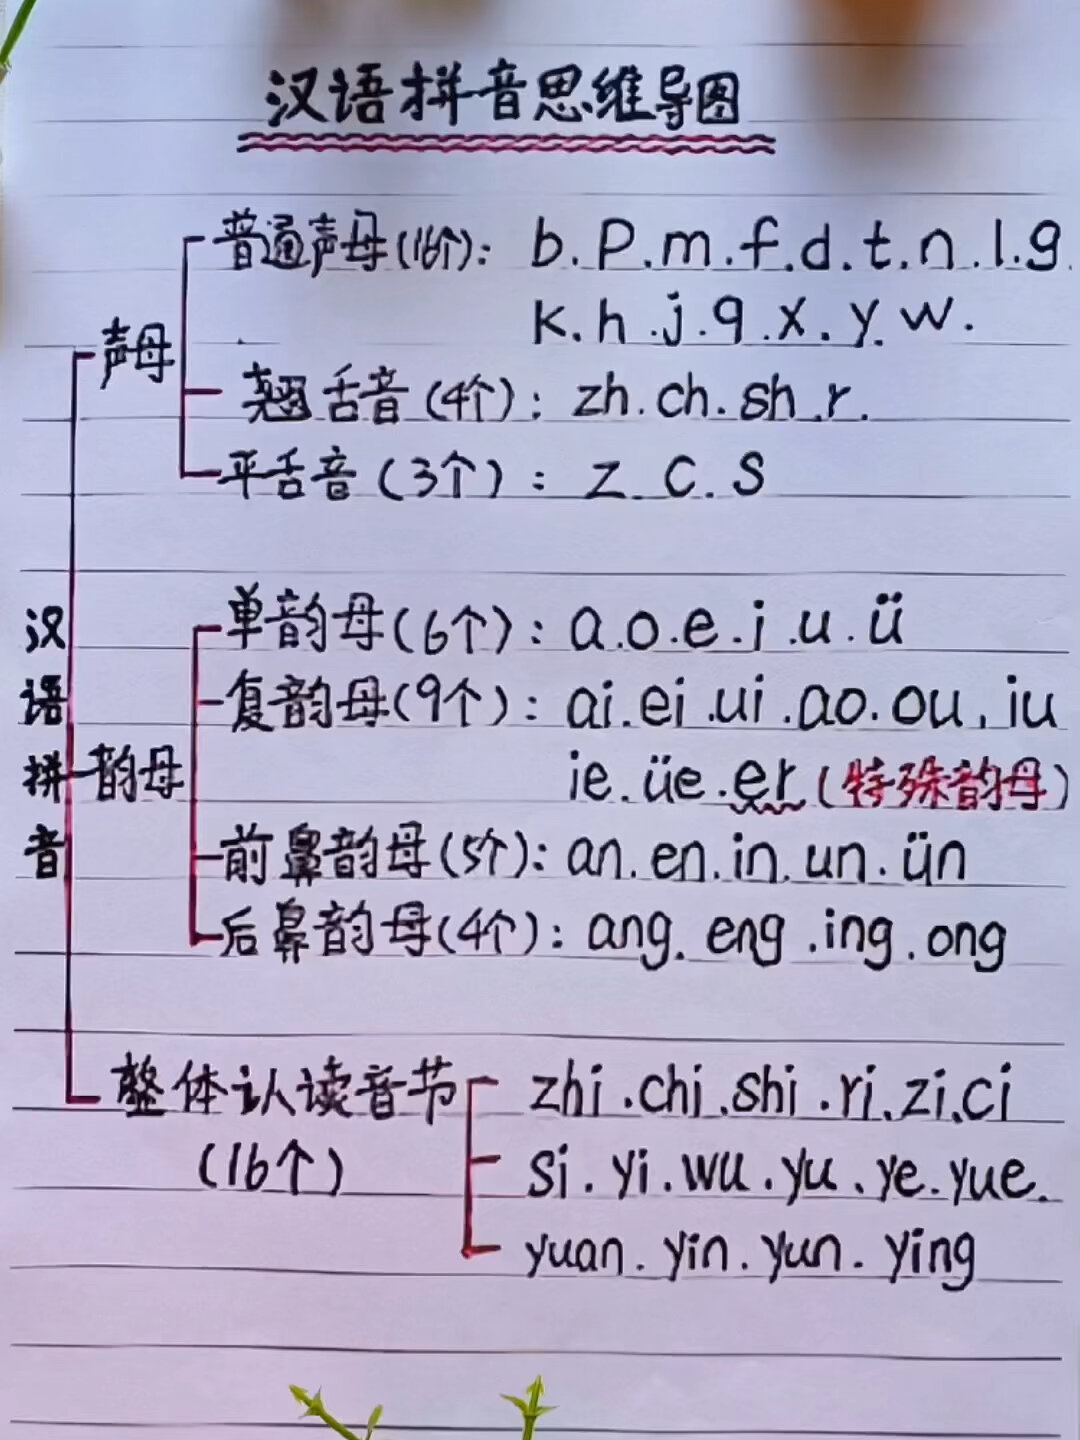 汉语拼音思维导图
汉语拼音
声母
普通声母(16个): b.p.m.f.d.t.n.l.g.
k.h.j.q.x.y.w.
翘舌音(4个): zh.ch.sh.r.
平舌音(3个): z.c.s
韵母
单韵母(6个): a.o.e.i.u.ü
复韵母(9个): ai.ei.ui.ao.ou.iu
ie.üe.er(特殊韵母)
前鼻韵母(5个): an.en.in.un.ün
后鼻韵母(4个): ang.eng.ing.ong
整体认读音节
(16个)
zhi.chi.shi.ri.zi.ci
si.yi.wu.yu.ye.yue.
yuan.yin.yun.ying